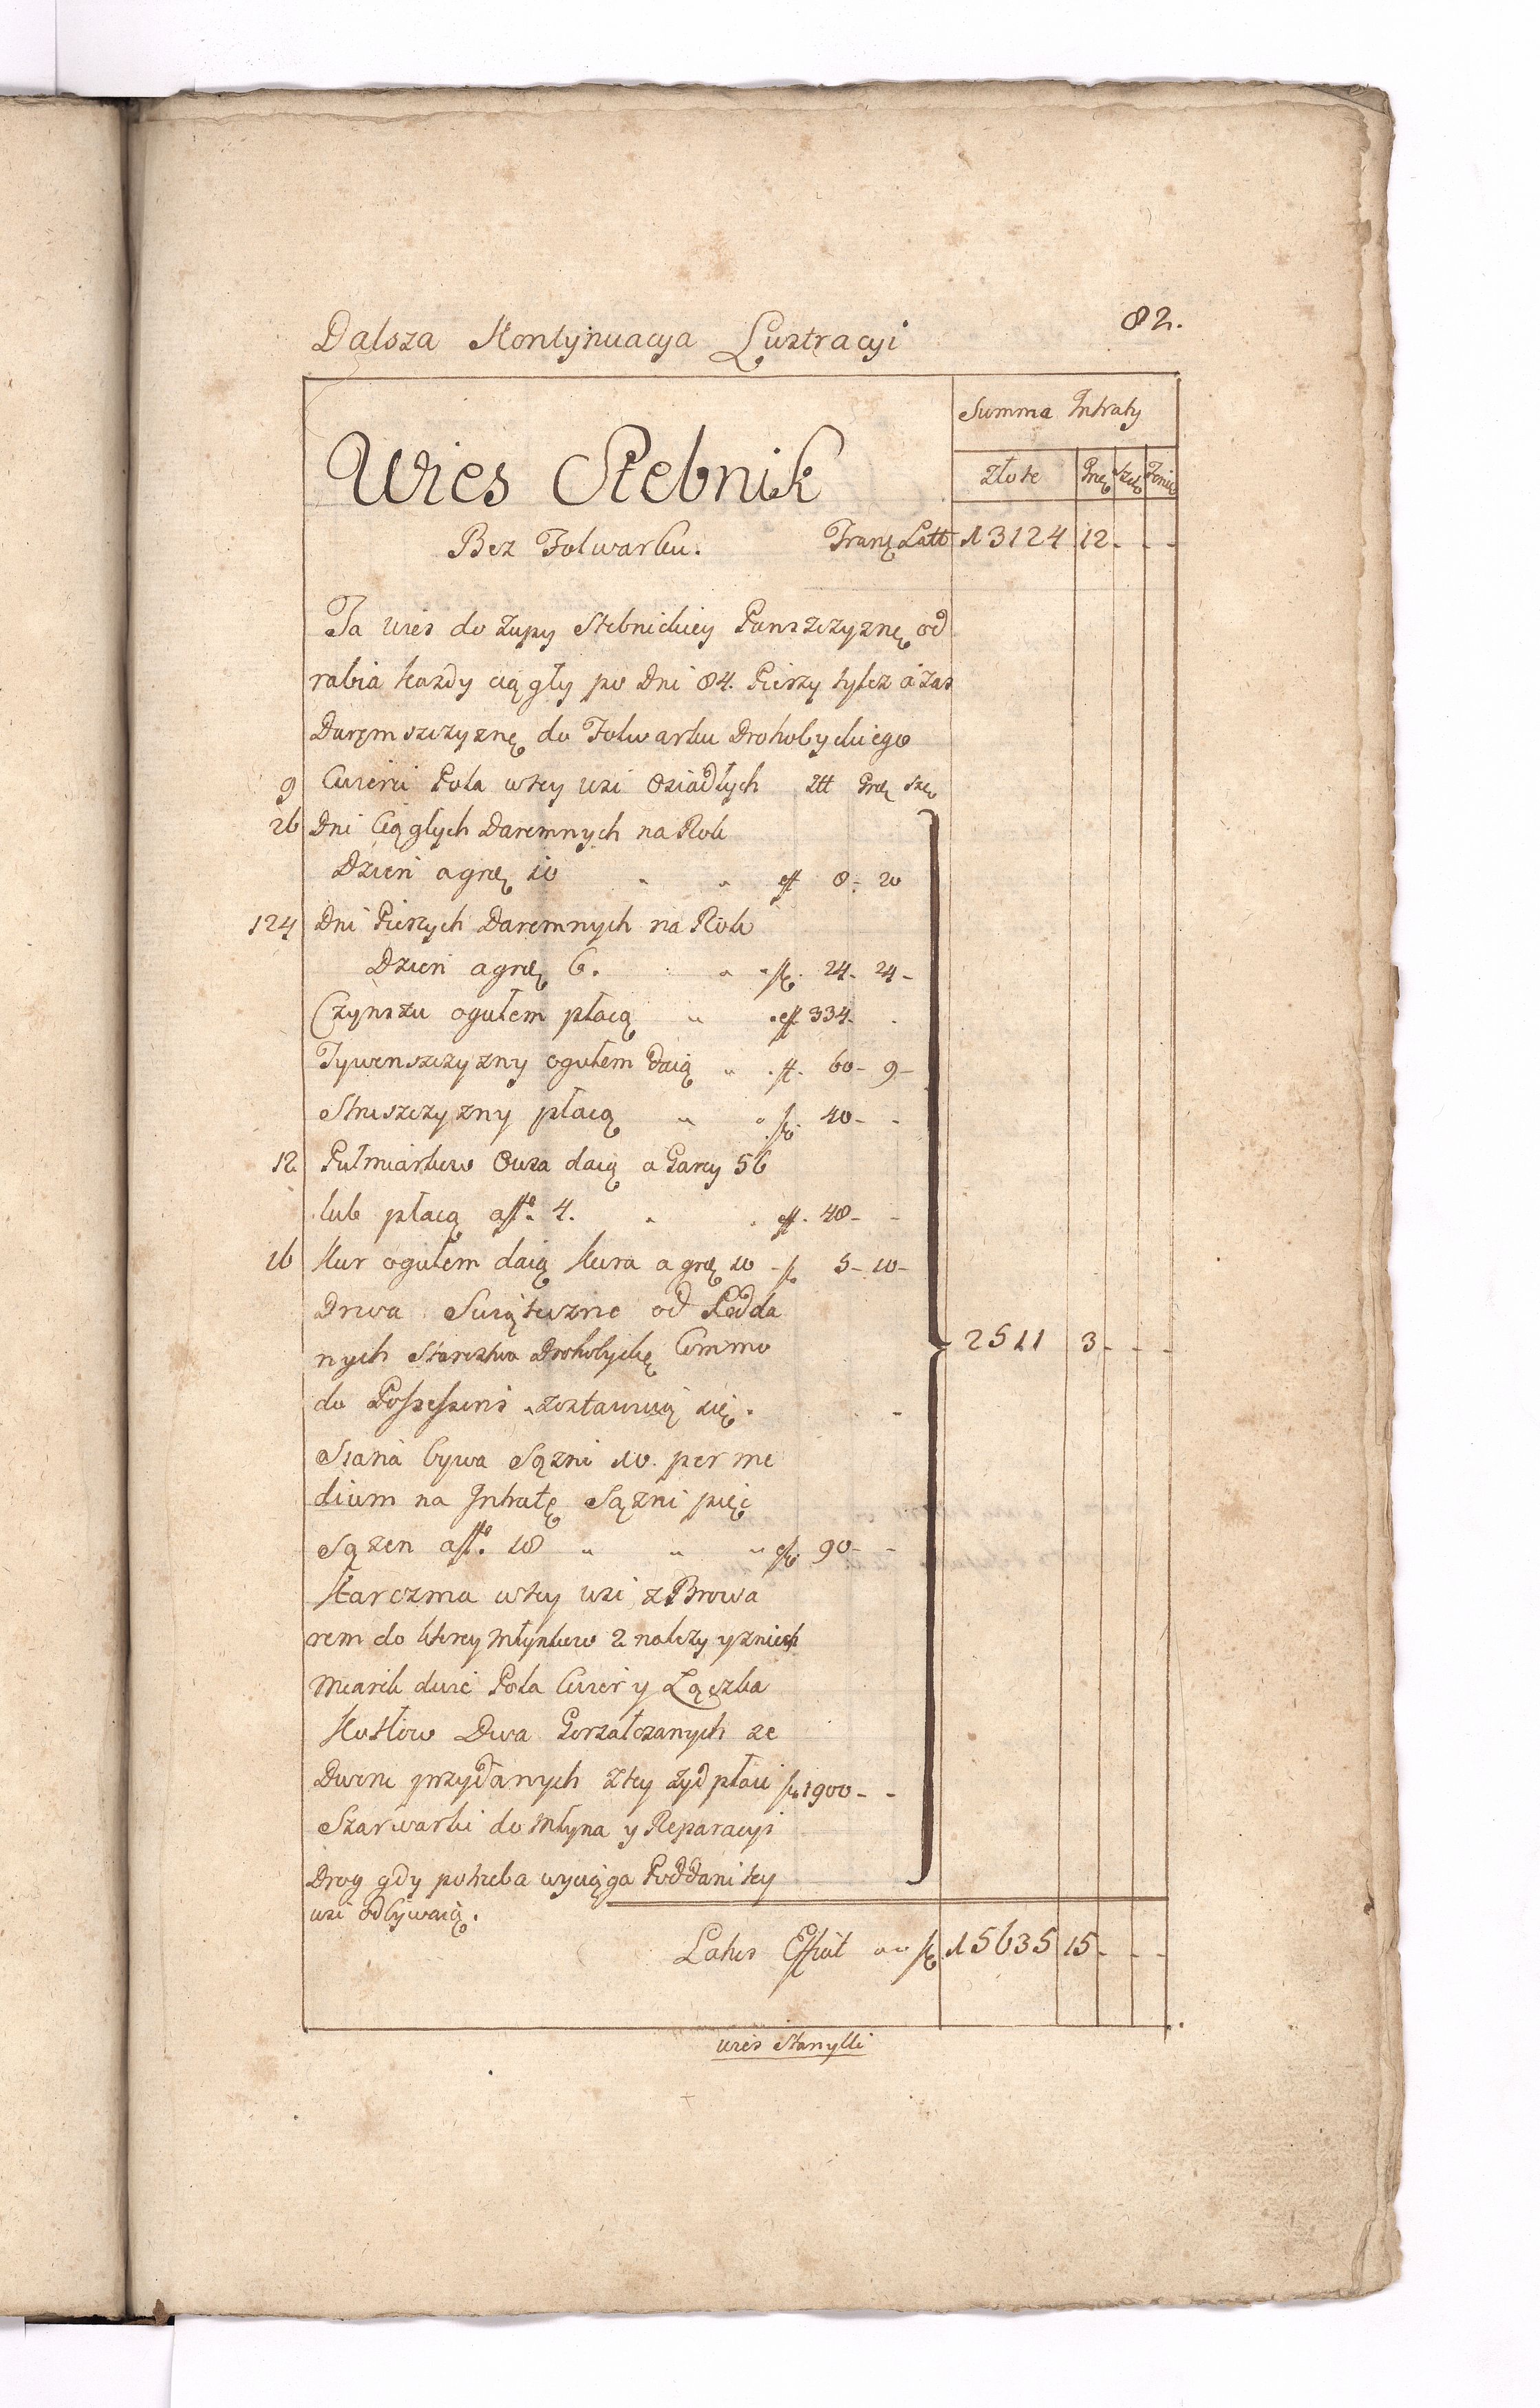 82.
Dalsza Kontynuacya Lustracyi
Summa Intraty
Wies Stebnik
Złote Grę Szel
Bez Folwarku. Tranę Latt 13124 12 - - -
Ta wies do Zupy Stebnickiey Panszczyznę od
rabia każdy ciągły po Dni 84. Pieszy tylez a zas
Daremszczyznę do Folwarku Drohobyckiego
9 Cwierci Pola wtey wsi Osiadłych Złł Grę Szę
26 Dni Ciągłych Daremnych na Rok
Dzień a grę 10 " " ff 8 - 20
124 Dni Pieszych Daremnych na Rok
Dzień a grę 6. " " f. 24 - 24 -
Czynszu ogułem płacą " ff 334 -
Tywonszczyzny ogułem daią " ff. 60 - 9 -
Struszczyzny płacą " " f. 40 - -
12 Pułmiarkow Owsa daią a Garcy 56
lub płacą aff. 4. " " ff. 48 - -
16 Kur ogułem daią Kura a grę 10 - f 5 - 10 -
Drwa Swiąteczne od Podda
nych Starostwa Drohobyckię Commo
2511 3 - - -
do Possessiis zostawuią się. -
Siana bywa Sązni 10. per me
dium na Intratę Sązni pięć
Sązen aff. 18 " " " f. 90 - -
Karczma wtey wsi z Browa
rem do ktorey Młynkow 2 nalezy y zniesch
Miarek dwie Pola Cwierć y Łączka
Kotłow Dwa Gorzałczanych ze
Dworu przydanych z tey Zyd płaci f 1900 - -
Szarwarki do Młyna y Reparacyi
Drog gdy potrzeba wyciąga Poddani tey
wsi odbywaią.
Latus Efficit " " f. 15635 15 - - -
wies Stanylli